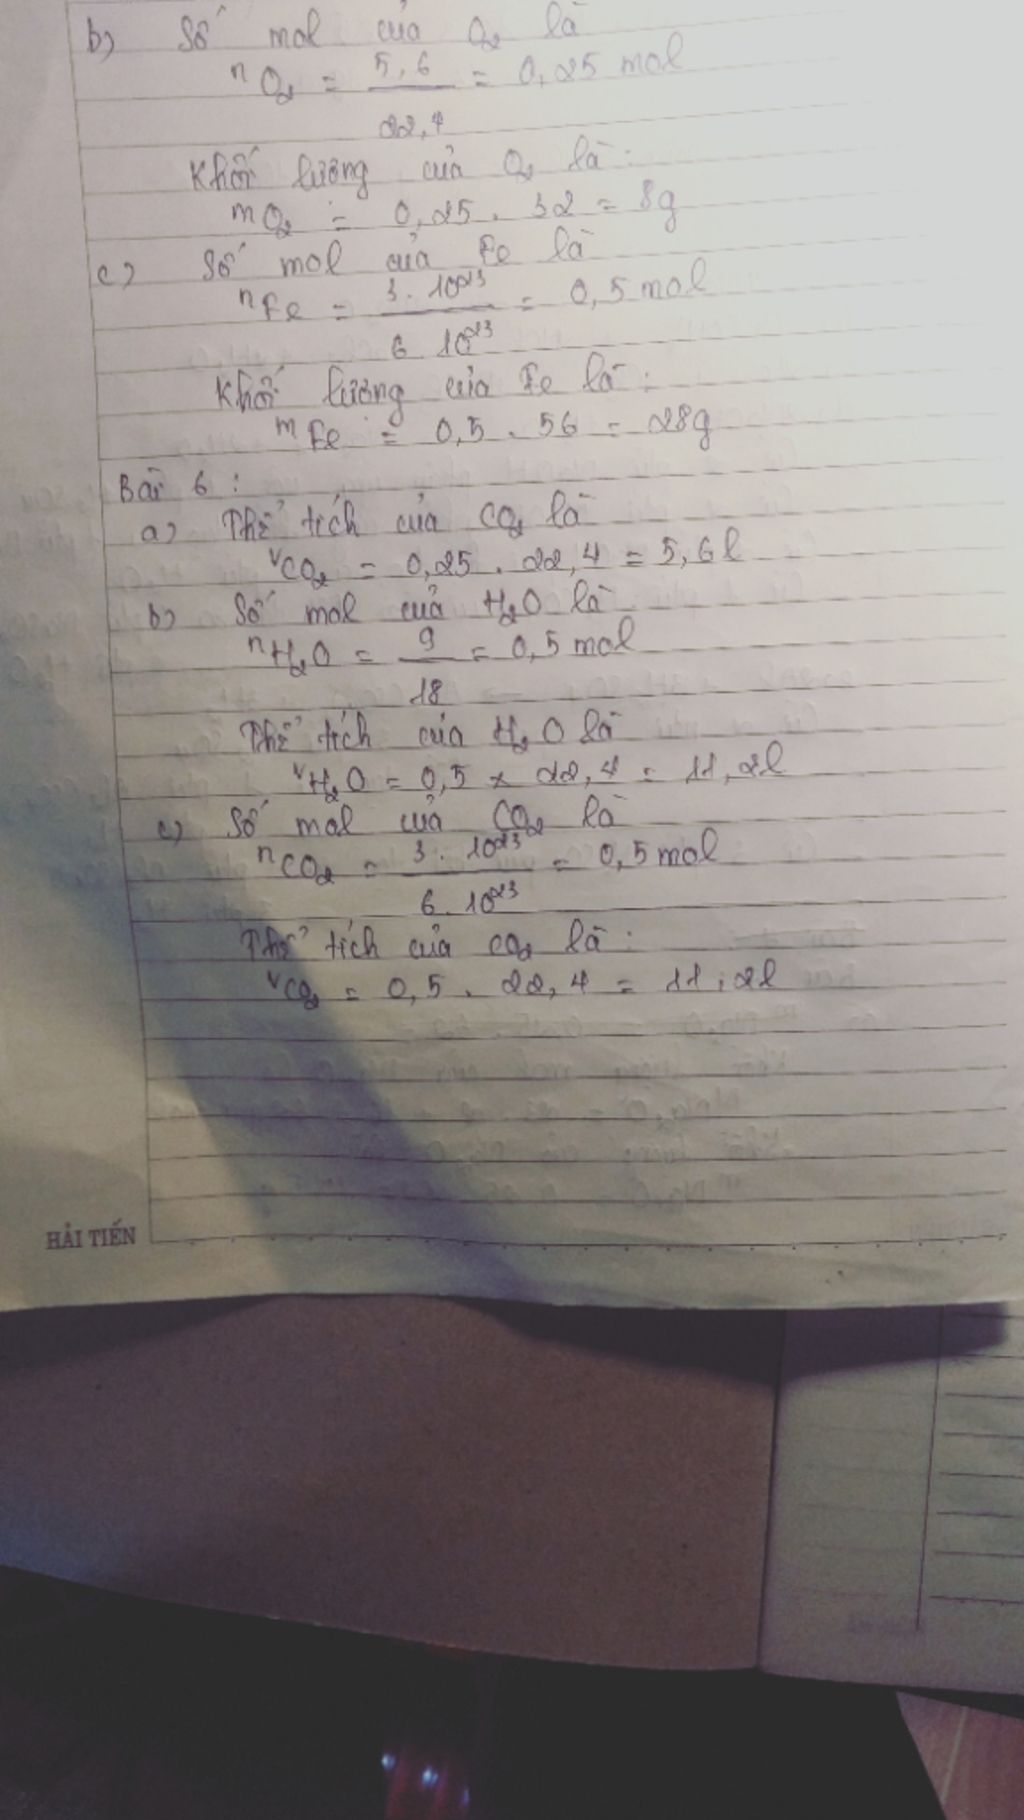 b) Số mol của O₂ là
nO₂ = 5,6 / 22,4 = 0,25 mol
Khối lượng của O₂ là :
mO₂ = 0,25 . 32 = 8g
c) Số mol của Fe là
nFe = 3 . 10²³ / 6 10²³ = 0,5 mol
Khối lượng của Fe là :
mFe = 0,5 . 56 = 28g
Bài 6 :
a) Thể tích của CO₂ là
VCO₂ = 0,25 . 22,4 = 5,6l
b) Số mol của H₂O là
nH₂O = 9 / 18 = 0,5 mol
Thể tích của H₂O là
VH₂O = 0,5 x 22,4 = 11,2l
c) Số mol của CO₂ là
nCO₂ = 3 . 10²³ / 6 . 10²³ = 0,5 mol
Thể tích của CO₂ là :
VCO₂ = 0,5 . 22,4 = 11,2l
HẢI TIẾN